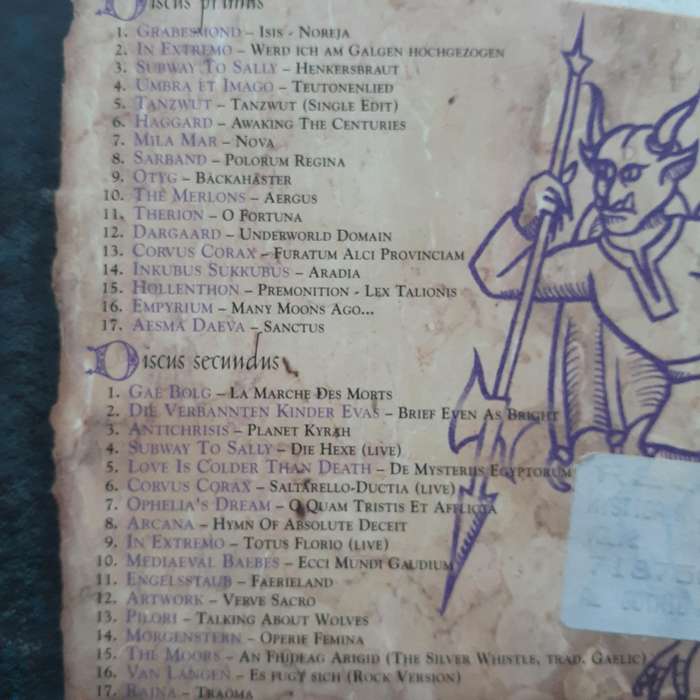 Discus primus
1. Grabesmond – Isis - Noreja
2. In Extremo – Werd ich am Galgen hochgezogen
3. Subway To Sally – Henkersbraut
4. Umbra Et Imago – Teutonenlied
5. Tanzwut – Tanzwut (Single Edit)
6. Haggard – Awaking The Centuries
7. Mila Mar – Nova
8. Sarband – Polorum Regina
9. Otyg – Bäckahäster
10. The Merlons – Aergus
11. Therion – O Fortuna
12. Dargaard – Underworld Domain
13. Corvus Corax – Furatum Alci Provinciam
14. Inkubus Sukkubus – Aradia
15. Hollenthon – Premonition - Lex Talionis
16. Empyrium – Many Moons Ago...
17. Aesma Daeva – Sanctus
Discus secundus
1. Gae Bolg – La Marche Des Morts
2. Die Verbannten Kinder Evas – Brief Even As Bright
3. Antichrisis – Planet Kyrah
4. Subway To Sally – Die Hexe (live)
5. Love Is Colder Than Death – De Mysteriis Egyptorum
6. Corvus Corax – Saltarello-Ductia (live)
7. Ophelia's Dream – O Quam Tristis Et Afflicta
8. Arcana – Hymn Of Absolute Deceit
9. In Extremo – Totus Florio (live)
10. Mediaeval Baebes – Ecci Mundi Gaudium
11. Engelsstaub – Faerieland
12. Artwork – Verve Sacro
13. Pilori – Talking About Wolves
14. Morgenstern – Operie Femina
15. The Moors – An Fhideag Arigid (The Silver Whistle, trad. Gaelic)
16. Van Langen – Es fugt sich (Rock Version)
17. Raina – Traoma